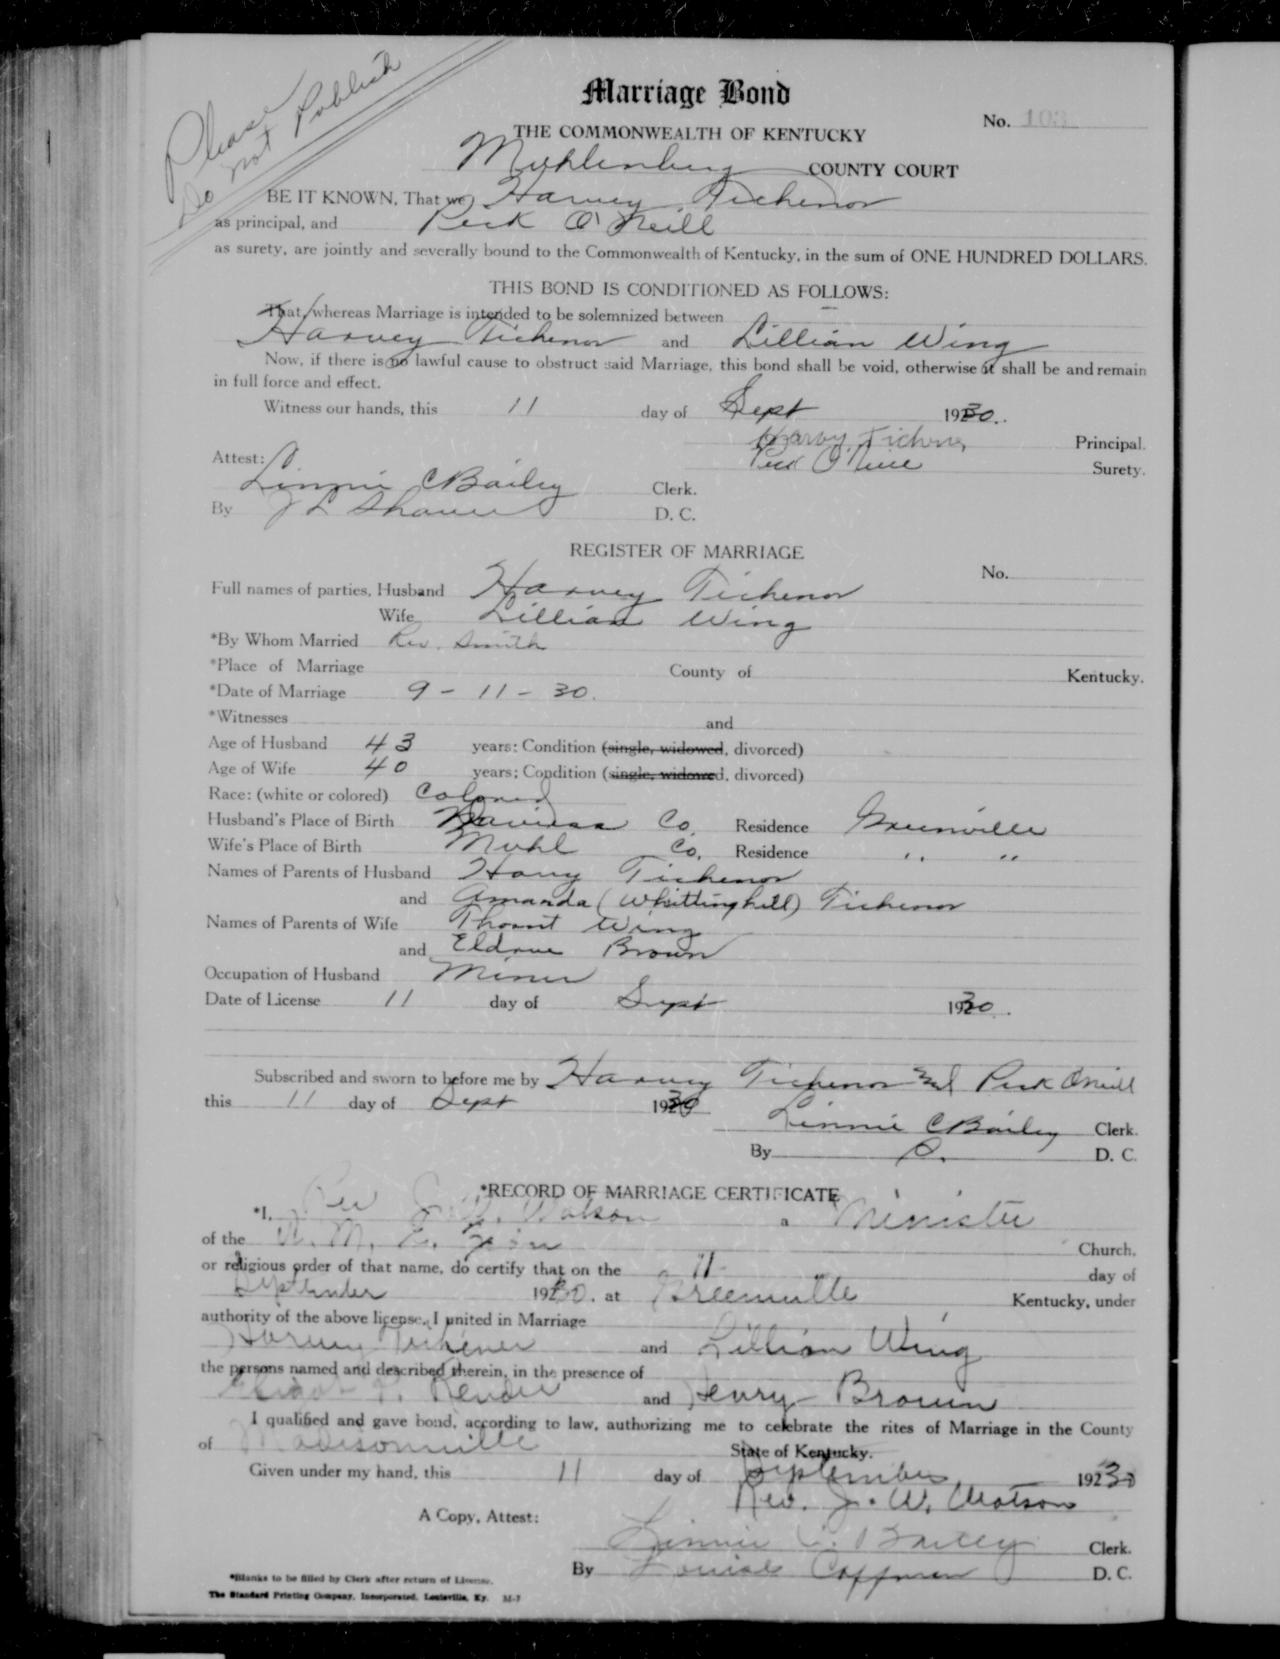 Please
Do not Publish
Marriage Bond
No. 103
THE COMMONWEALTH OF KENTUCKY
Muhlenberg COUNTY COURT
BE IT KNOWN, That we, Harvey Tichenor
as principal, and Peck O'Neill
as surety, are jointly and severally bound to the Commonwealth of Kentucky, in the sum of ONE HUNDRED DOLLARS.
THIS BOND IS CONDITIONED AS FOLLOWS:
That, whereas Marriage is intended to be solemnized between
Harvey Tichenor and Lillian Wing
Now, if there is no lawful cause to obstruct said Marriage, this bond shall be void, otherwise it shall be and remain
in full force and effect.
Witness our hands, this 11 day of Sept 1930.
Harvey Tichenor Principal.
Peck O'Neill Surety.
Attest:
Linnie C Bailey Clerk.
By J L Shaver D. C.
REGISTER OF MARRIAGE
No.
Full names of parties, Husband Harvey Tichenor
Wife Lillian Wing
*By Whom Married Rev. Smith
*Place of Marriage County of Kentucky.
*Date of Marriage 9 - 11 - 30.
*Witnesses and
Age of Husband 43 years; Condition (single, widowed, divorced)
Age of Wife 40 years; Condition (single, widowed, divorced)
Race: (white or colored) Colored
Husband's Place of Birth Daviess Co. Residence Greenville
Wife's Place of Birth Muhl Co. Residence " "
Names of Parents of Husband Harry Tichenor
and Amanda (Whittinghill) Tichenor
Names of Parents of Wife Wing
and Brown
Occupation of Husband Miner
Date of License 11 day of Sept 1930.
Subscribed and sworn to before me by Harvey Tichenor and Peck O'Neill
this 11 day of Sept 1930
Linnie C Bailey Clerk.
By D. C.
*RECORD OF MARRIAGE CERTIFICATE
*I, Rev J. W. Watson a Minister
of the A. M. E. Zion Church,
or religious order of that name, do certify that on the 11 day of
September 1930. at Greenville Kentucky, under
authority of the above license, I united in Marriage
Harvey Tichenor and Lillian Wing
the persons named and described therein, in the presence of
Render and Henry Brown
I qualified and gave bond, according to law, authorizing me to celebrate the rites of Marriage in the County
of Madisonville State of Kentucky.
Given under my hand, this 11 day of September 1930
Rev. J. W. Watson
A Copy, Attest:
Linnie C. Bailey Clerk.
By Louise Coffman D. C.
*Blanks to be filled by Clerk after return of License.
The Standard Printing Company, Incorporated, Louisville, Ky. M-7